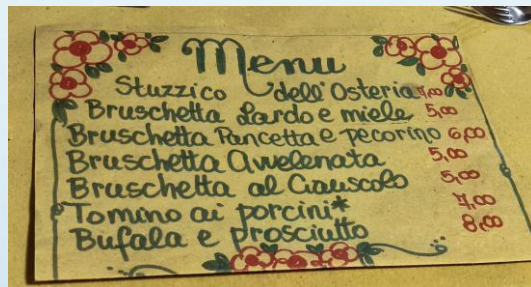 Menu
Stuzzico dell'Osteria 7,00
Bruschetta Lardo e miele 5,00
Bruschetta Pancetta e pecorino 6,00
Bruschetta Avvelenata 5,00
Bruschetta al Ciauscolo 5,00
Tomino ai porcini* 7,00
Bufala e prosciutto 8,00